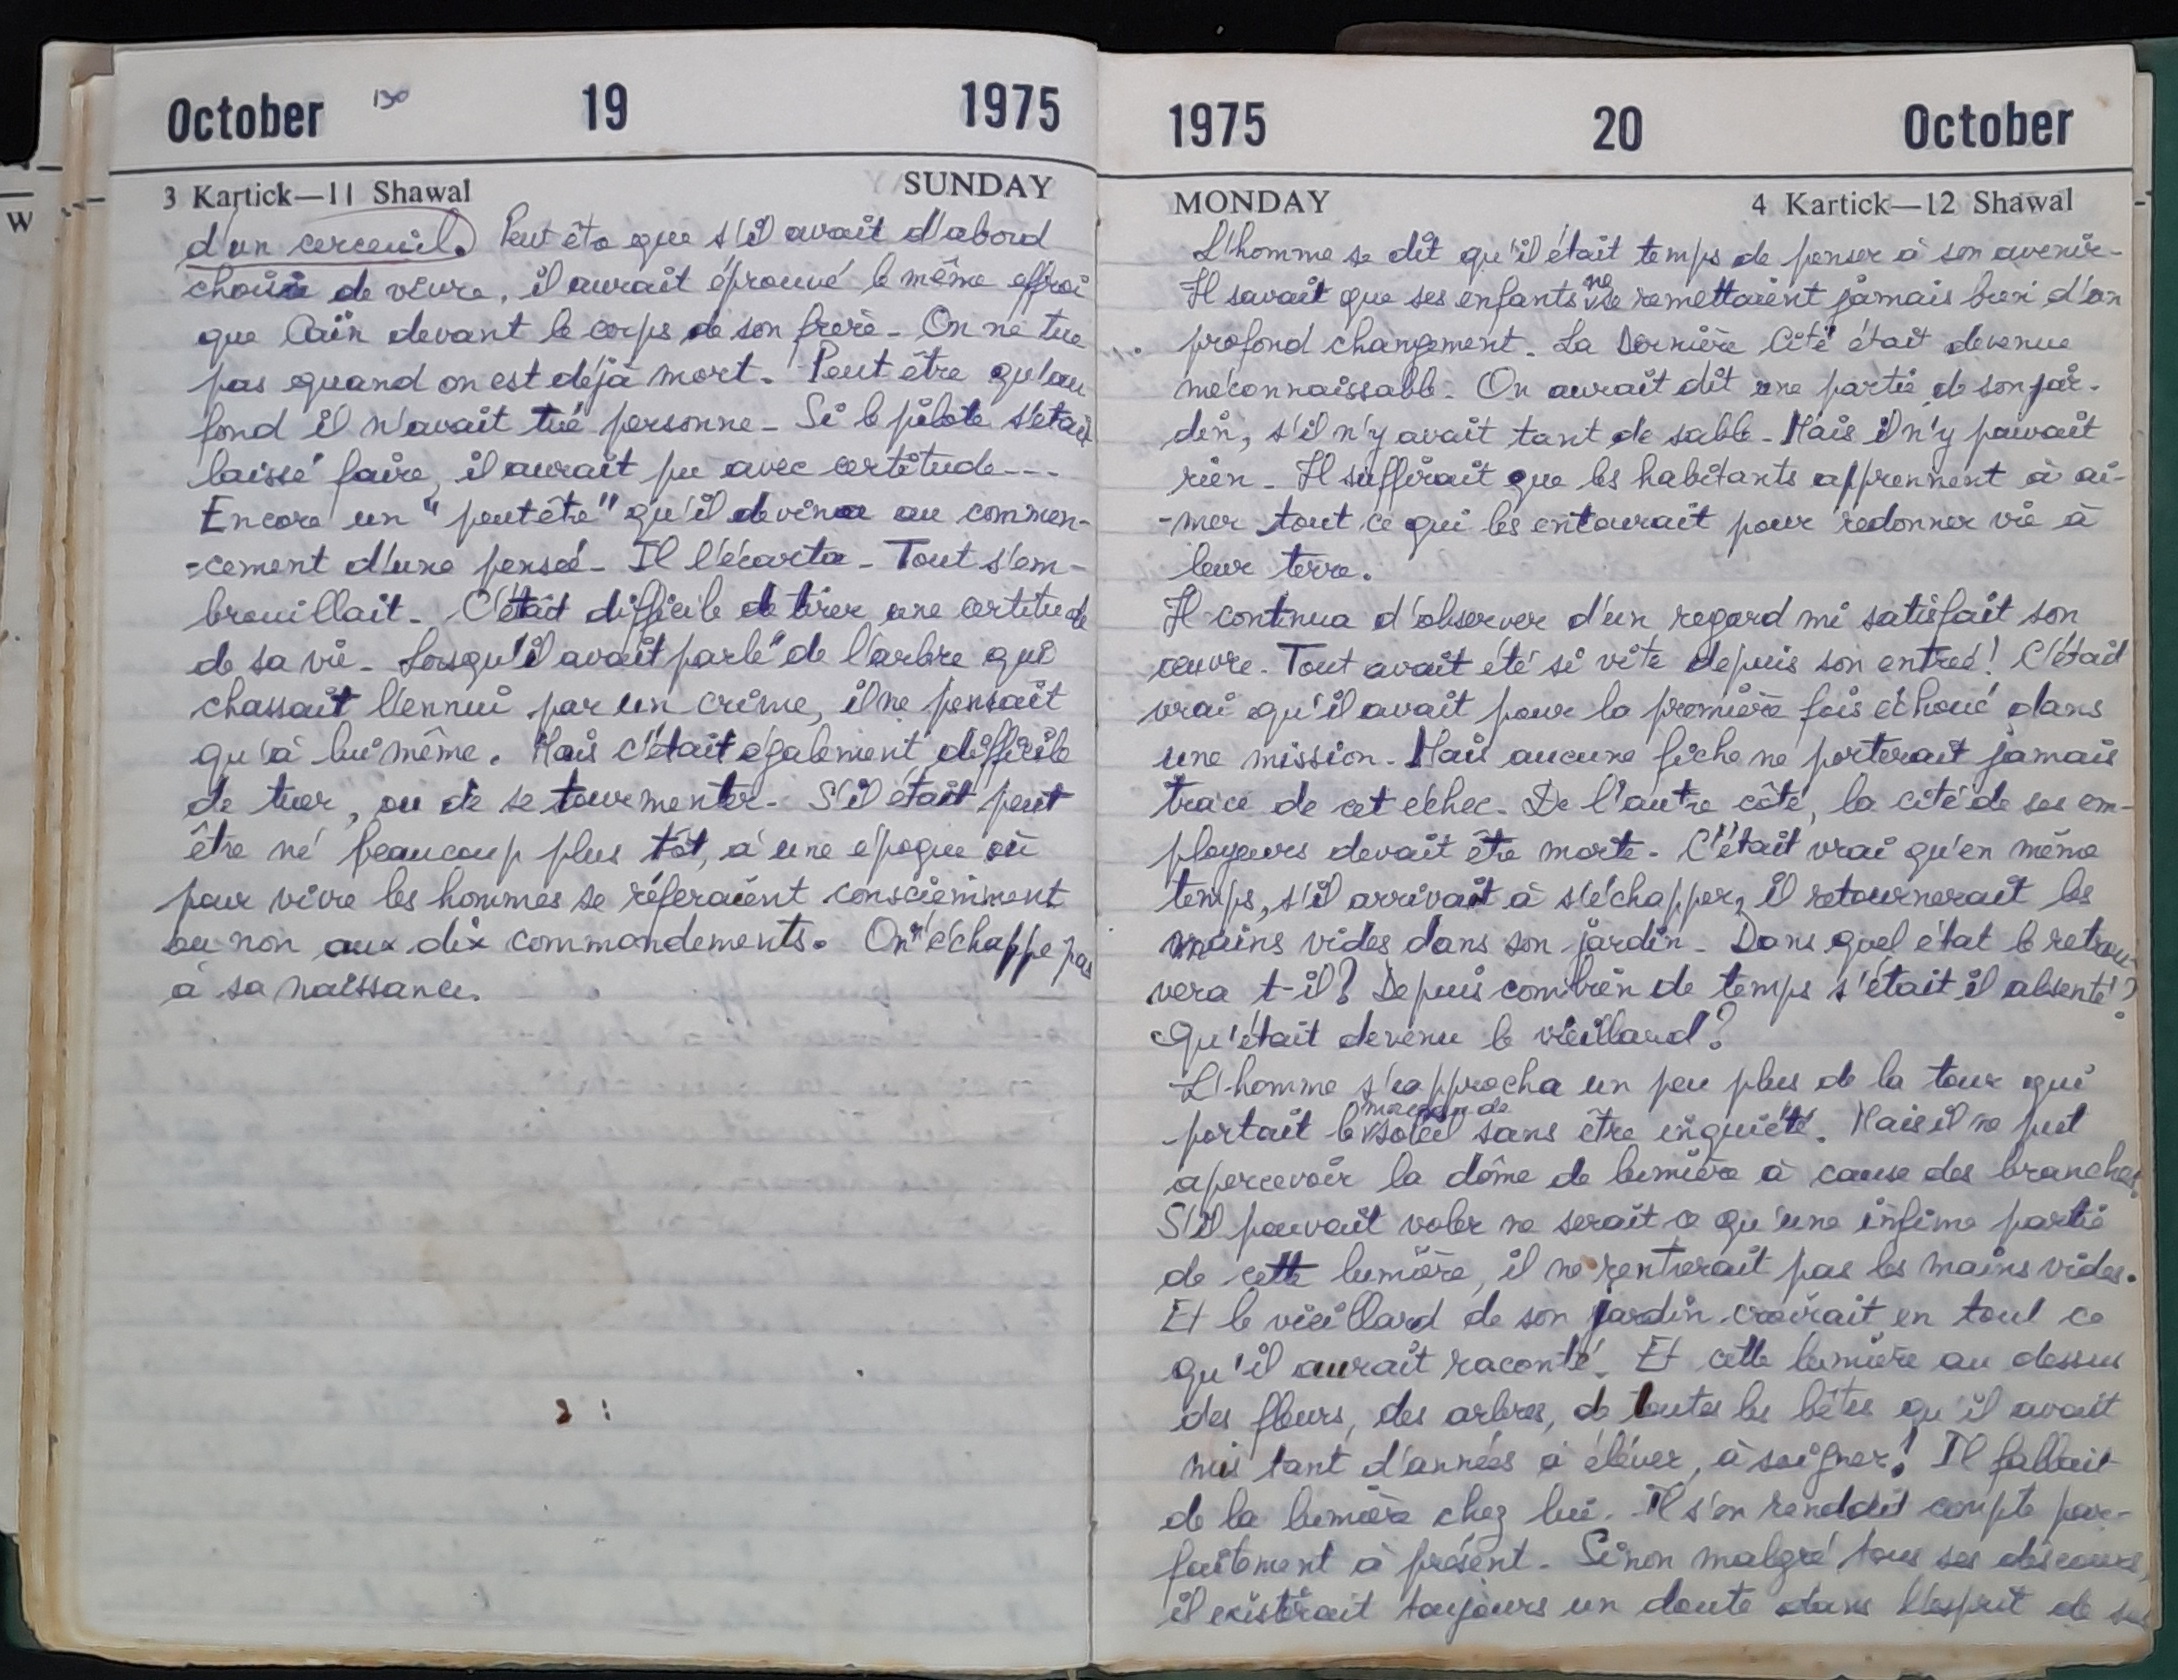 October 130 19 1975
3 Kartick—11 Shawal SUNDAY
d'un cerceuil. Peut êtr que s'il avait d'abord
choisi de vivre, il aurait éprouvé le même effroi
que Caïn devant le corps de son frère - On ne tue
pas quand on est déjà mort. Peut être qu'au
fond il n'avait tué personne - Si le pilote s'était
laissé faire, il aurait pu avec certitude ---
Encore un "peut être" qu'il devina au commen-
-cement d'une pensée - Il l'écarta - Tout s'em-
brouillait - C'était difficile de tirer une certitude
de sa vie - Lorsqu'il avait parlé de l'arbre qui
chassait l'ennui par un crime, il ne pensait
qu'à lui même. Mais c'était également difficile
de tuer, ou de se tourmenter - S'il était peut
être né beaucoup plus tôt, à une époque où
pour vivre les hommes se réferaient consciemment
ou non aux dix commandements. On n'échappe pas
à sa naissance.
1975 20 October
MONDAY 4 Kartick—12 Shawal
L'homme se dit qu'il était temps de penser à son avenir -
Il savait que ses enfants ne se remettaient jamais bien d'un
profond changement - La Dernière Cité était devenue
méconnaissable - On aurait dit une partie de son jar-
din, s'il n'y avait tant de sable - Mais il n'y pouvait
rien - Il suffirait que les habitants apprennent à ai-
-mer tout ce qui les entourait pour redonner vie à
leur terre.
Il continua d'observer d'un regard mi satisfait son
œuvre - Tout avait été si vite depuis son entrée! C'était
vrai qu'il avait pour la première fois échoué dans
une mission - Mais aucune fiche ne porterait jamais
trace de cet échec - De l'autre côté, la cité de ses em-
ployeurs devait être morte - C'était vrai qu'en même
temps, s'il arrivait à s'échapper, il retournerait les
mains vides dans son jardin - Dans quel état le retrou-
vera t-il? Depuis combien de temps s'était il absenté?
Qu'était devenu le vieillard?
L'homme s'approcha un peu plus de la tour qui
portait le soleil sans être inquiété. Mais il ne put
apercevoir la dôme de lumière à cause des branches.
S'il pouvait voler ne serait ce qu'une infime partie
de cette lumière, il ne rentrerait pas les mains vides.
Et le vieillard de son jardin croirait en tout ce
qu'il aurait raconté. Et cette lumière au dessus
des fleurs, des arbres, de toutes les bêtes qu'il avait
mis tant d'années à élever, à soigner! Il fallait
de la lumière chez lui. Il s'en rendait compte par-
faitement à présent - Sinon malgré tous ses discours,
il existerait toujours un doute dans l'esprit de ses